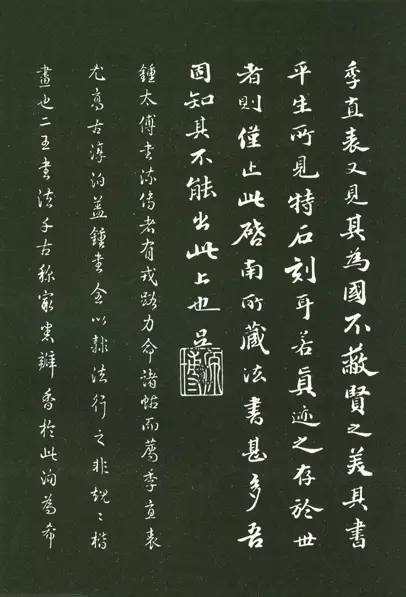 季直表又見其為國不蔽賢之美其書
平生所見特石刻耳若眞迹之存於世
者則僅止此啓南所藏法書甚多吾
固知其不能出此上也吳
原博
鍾太傅書流傳者有戎路力命諸帖而薦季直表
尤高古淳泊蓋鍾書全以隸法行之非規々楷
畫也二王書法千古称悉瓣香於此洵為希